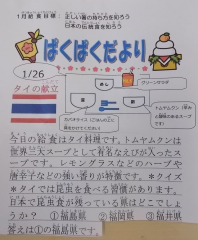 1月給食目標：正しい箸の持ち方を知ろう
日本の伝統食を知ろう
ぱくぱくだより
1/26
タイの献立
グリーンサラダ
めし
ガパオライス（ごはんの上に
具をかけてください）
トムヤムクン（辛み
と酸味のあるスープ
です）
今日の給食はタイ料理です。トムヤムクンは
世界三大スープとして有名なえびが入ったス
ープです。レモングラスなどのハーブや
唐辛子などの強い香りが特徴です。＊クイズ
＊タイでは昆虫を食べる習慣があります。
日本で昆虫食が残っている県はどこでしょ
うか？　①福島県　②福岡県　③福井県
答えは①の福島県です。